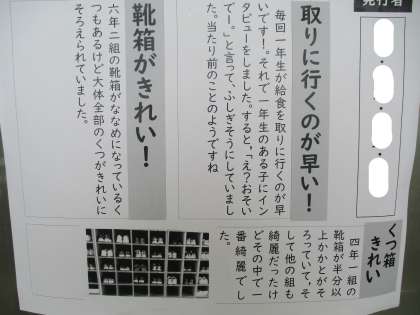 発行者
・
・
・
取りに行くのが早い!
毎回一年生が給食を取りに行くのが早
いです!。それで一年生のある子にイン
タビューをしました。すると、「え?おそい
で!。」と言って、ふしぎそうにしていまし
た。当たり前のことのようですね
靴箱がきれい!
六年二組の靴箱がななめになっているく
つもあるけど大体全部のくつがきれいに
そろえられていました。
くつ箱
きれい
四年一組の
靴箱が半分以
上かかとがそ
ろっていて、そ
して他の組も
綺麗だったけ
どその中で一
番綺麗でし
た。